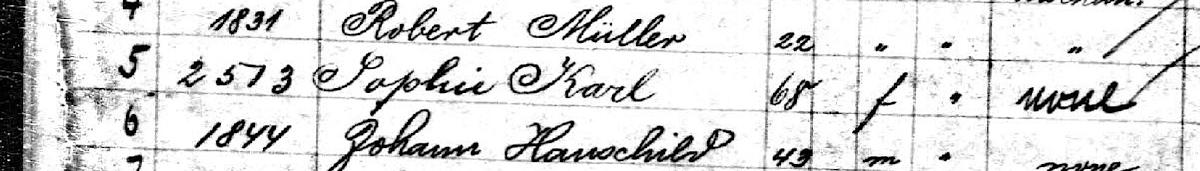 4 1831 Robert Müller 22 " " "
5 2513 Sophie Karl 68 f " none
6 1844 Johann Hauschild 49 m " none
7